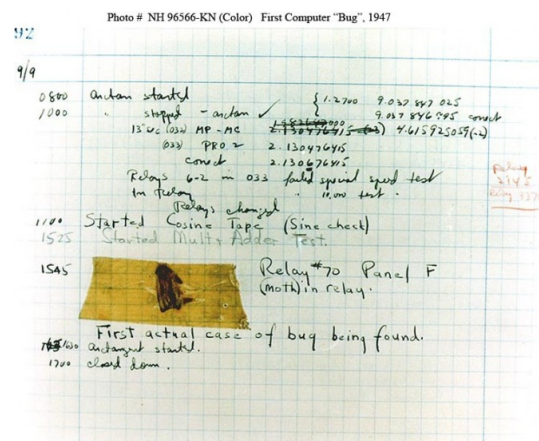 Photo # NH 96566-KN (Color) First Computer “Bug”, 1947
92
9/9
0800 arctan started
1000 " stopped - arctan ✓ { 1.2700 9.037 847 025
9.037 846 995 correct
13"uc (033) MP-MC 2.130476415 4.615925059(-2)
(033) PRO 2 2.130476415
correct 2.130676415
Relays 6-2 in 033 failed special speed test
in relay " 10.000 test.
Relays changed
Relay
2145
Relay 3370
1100 Started Cosine Tape (Sine check)
1525 Started Mult + Adder Test.
1545 Relay #70 Panel F
(moth) in relay.
First actual case of bug being found.
1630 arctangent started.
1700 closed down.